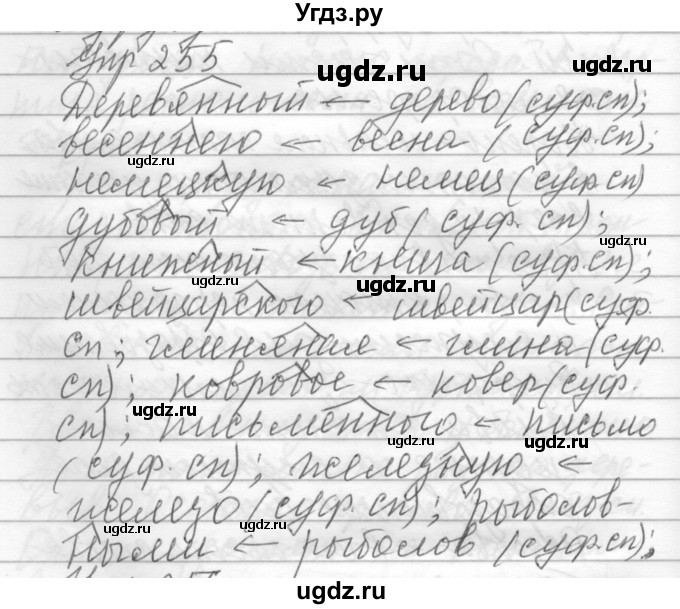 Угдз.ру
Упр 255
ugdz.ru
Деревянный ← дерево (суф.сп);
весеннего ← весна (суф.сп);
ugdz.ru
ugdz.ru
немецкую ← немец (суф.сп)
дубовый ← дуб (суф.сп);
ugdz.ru
книжный ← книга (суф.сп);
ugdz.ru
ugdz.ru
швейцарского ← швейцар (суф.
сп; глиняная ← глина (суф.
ugdz.ru
сп); ковровое ← ковер (суф.
ugdz.ru
сп); письменного ← письмо
ugdz.ru
(суф.сп); железную ←
ugdz.ru
железо (суф.сп); рыболов-
ugdz.ru
ugdz.ru
ными ← рыболов (суф.сп);
ugdz.ru